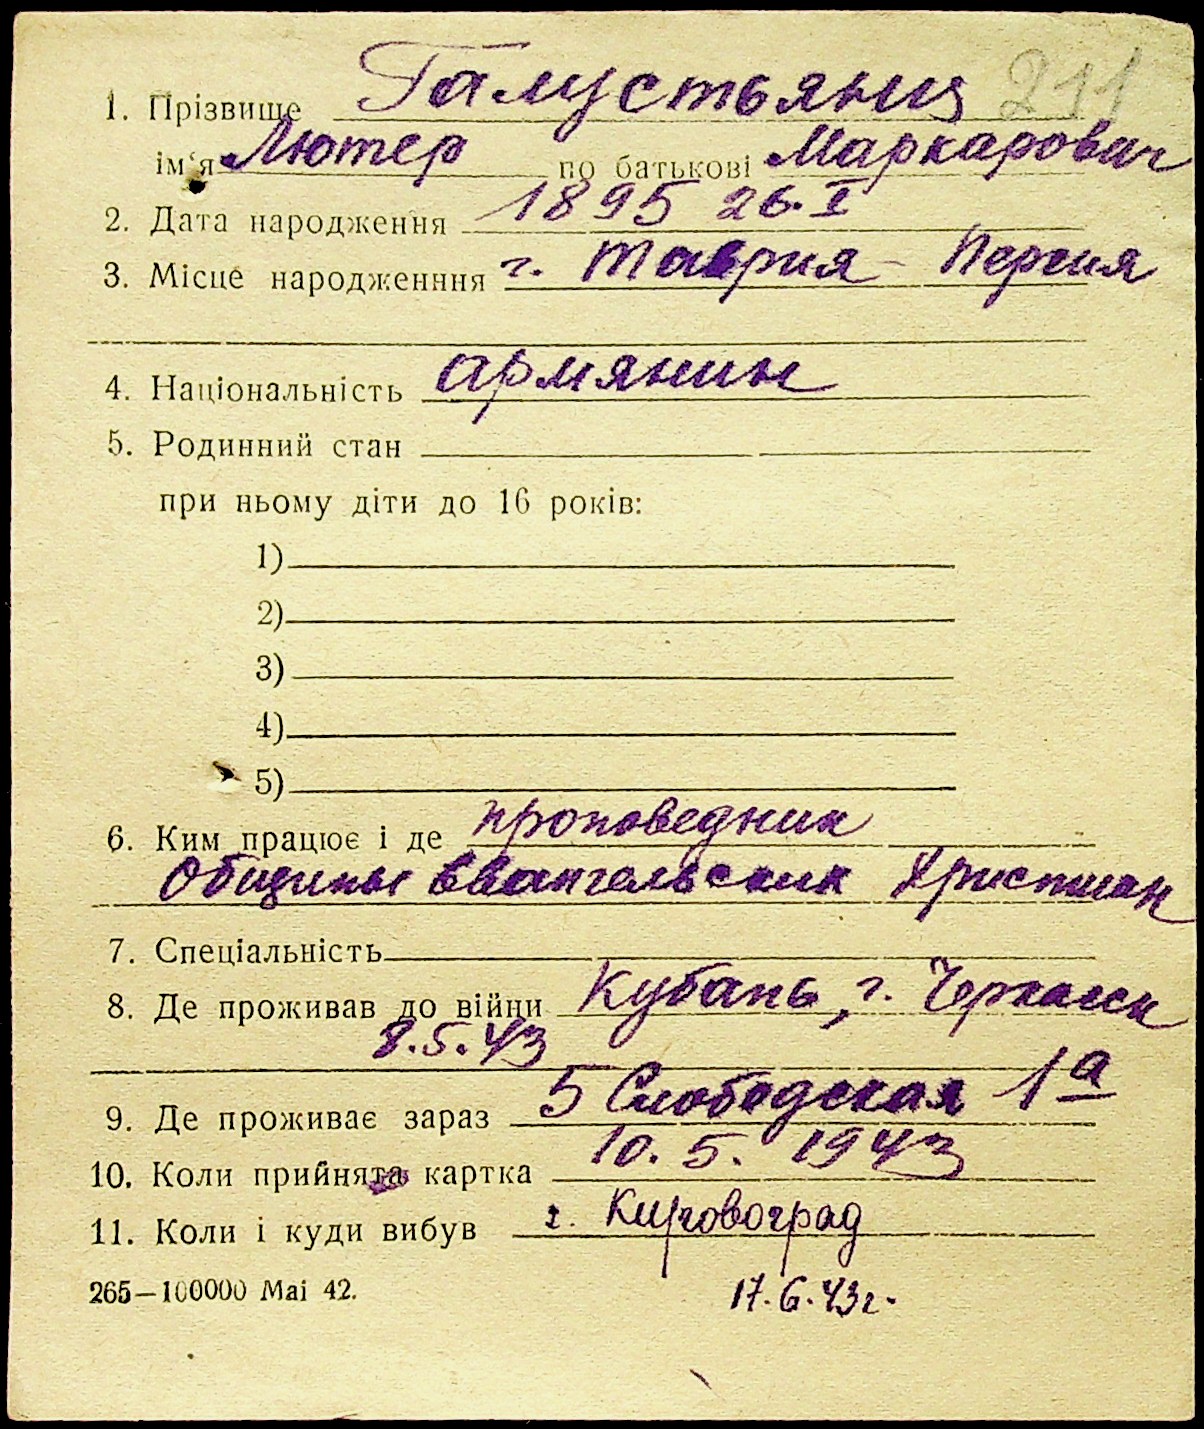 211
1. Прізвище Галустьянц
ім'я Лютер по батькові Маркарович
2. Дата народження 1895 26.I
3. Місце народженння г. Таврия - Персия
4. Національність армянин
5. Родинний стан
при ньому діти до 16 років:
1)
2)
3)
4)
5)
6. Ким працює і де проповедник
Общины Евангельских Христиан
7. Спеціальність
8. Де проживав до війни Кубань, г. Черкасск
8.5.43
9. Де проживає зараз 5 Слободская 1а
10. Коли прийнята картка 10.5.1943
11. Коли і куди вибув г. Кировоград
265—100000 Mai 42. 17.6.43г.